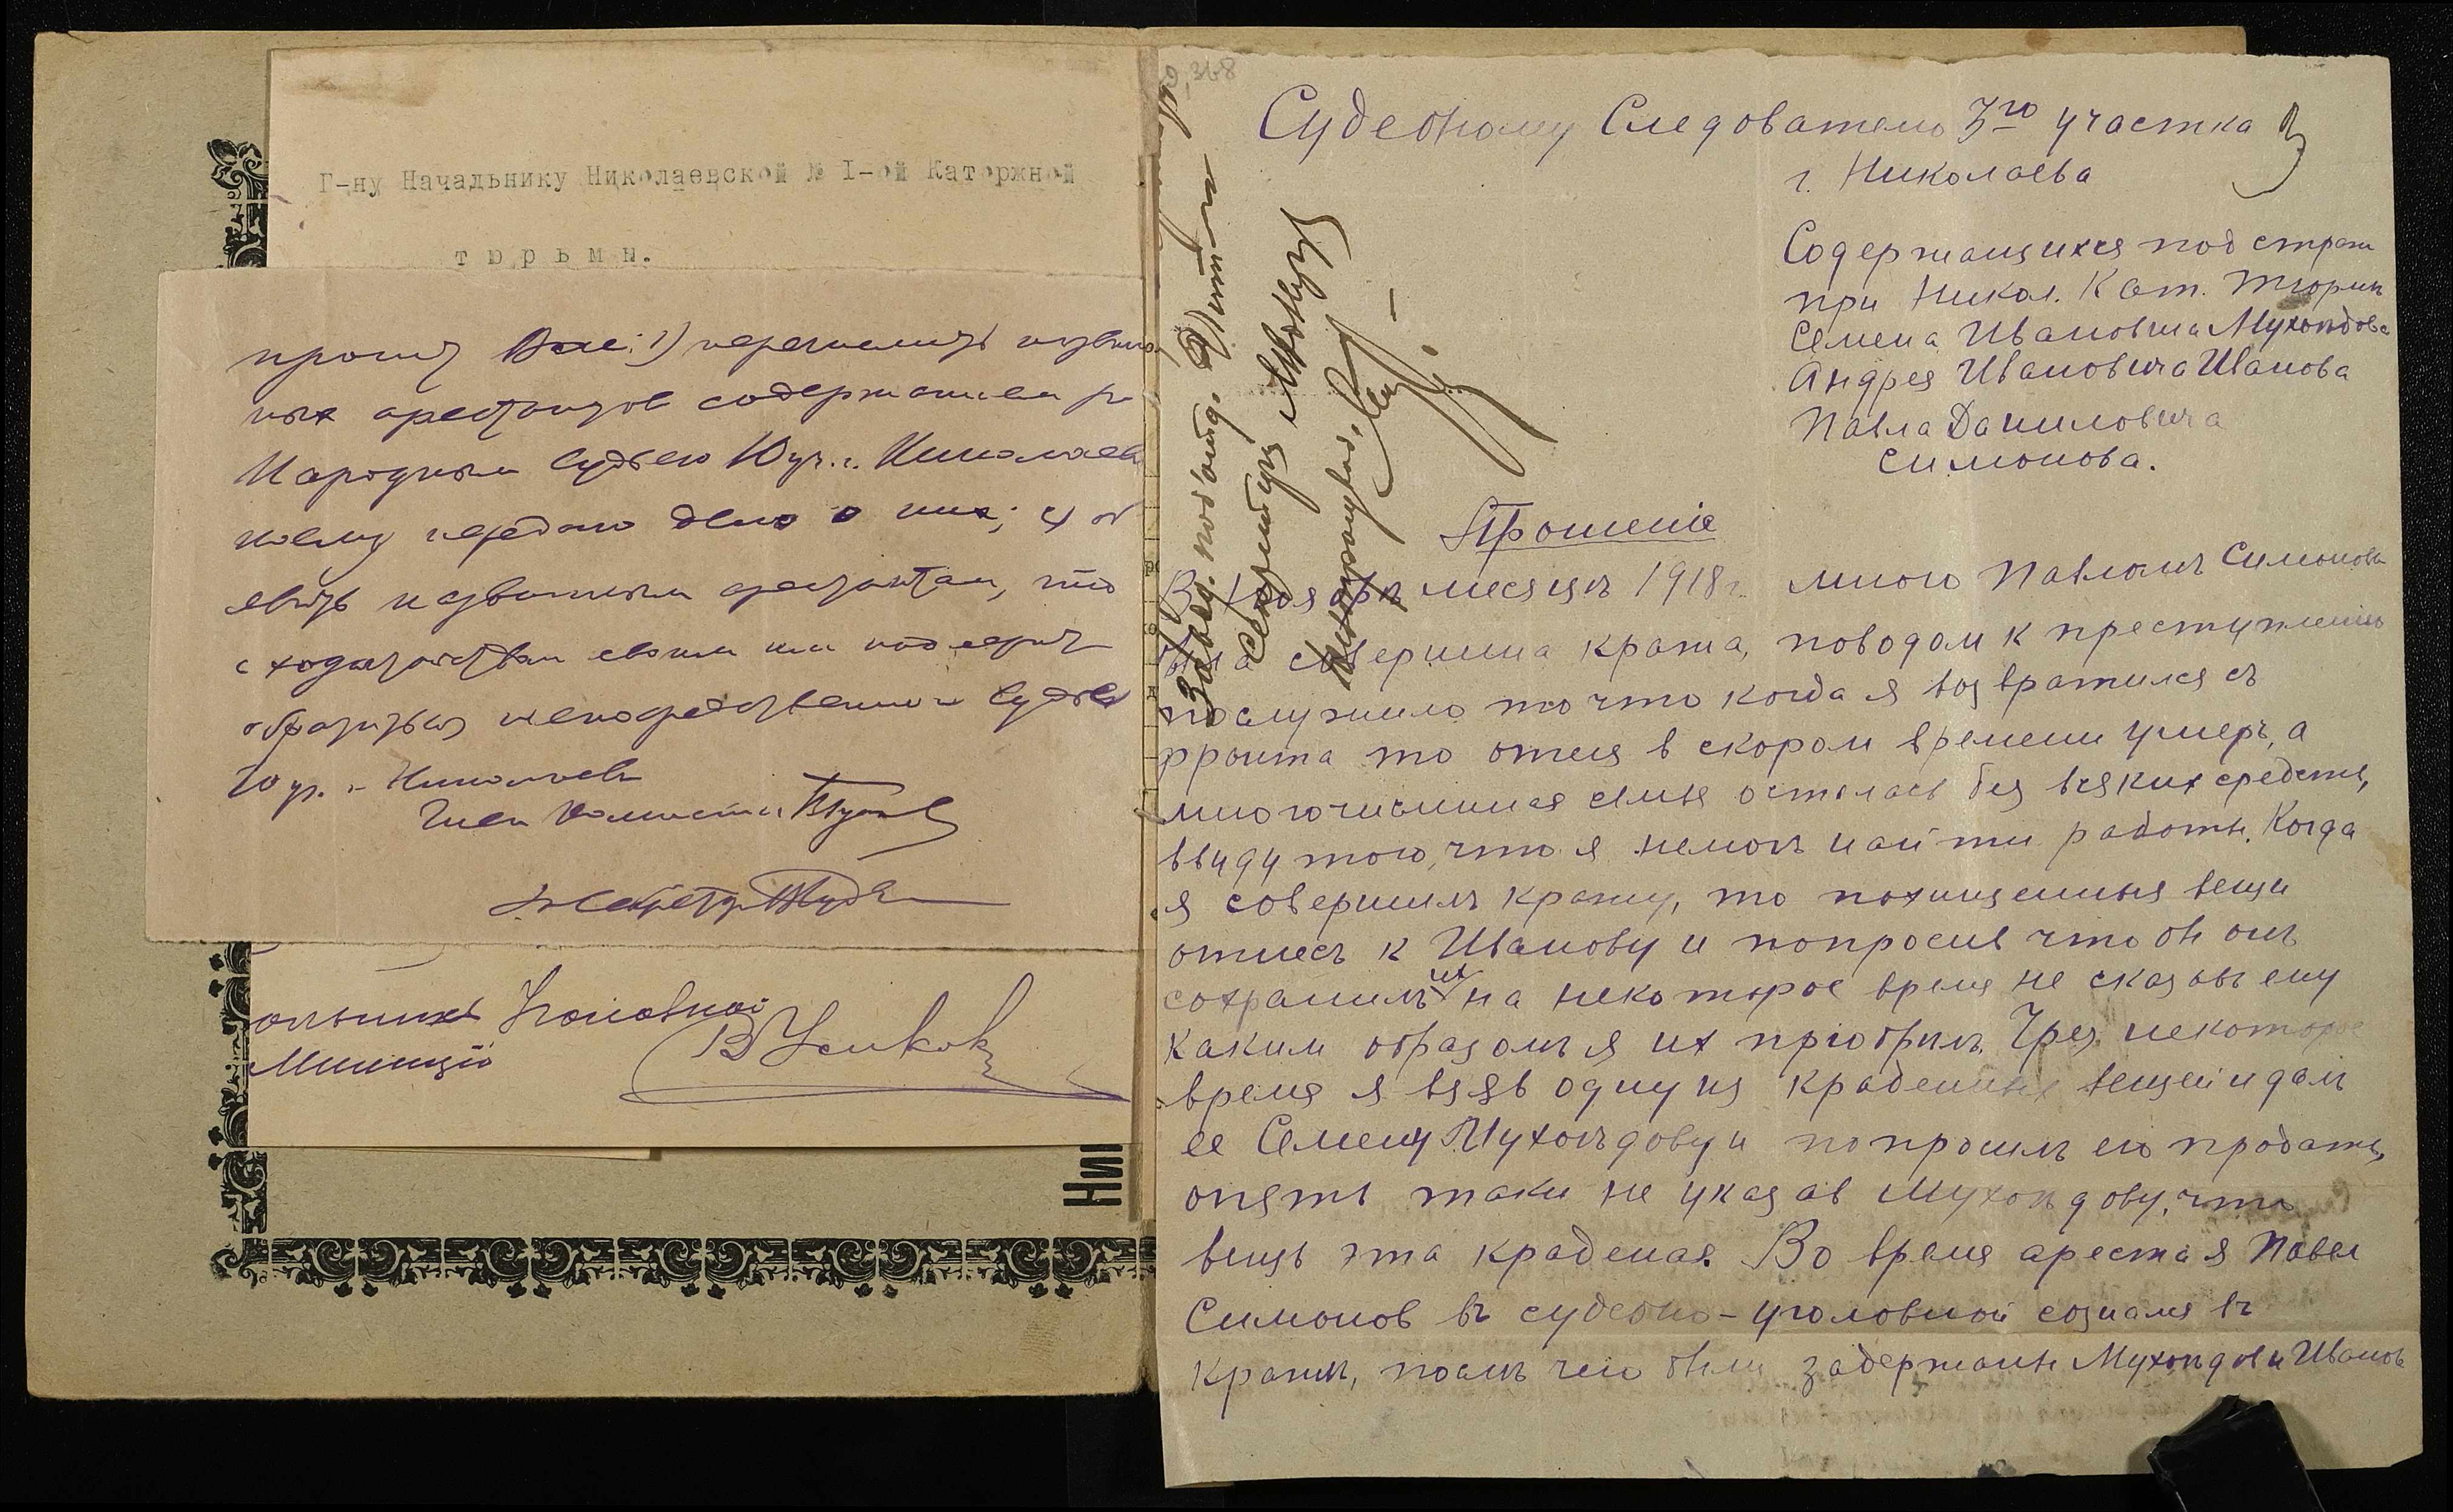 Г-ну Начадьнику Николаевской № I-ой Каторжной
т ю р ь м ы.
прошу Вас: 1) перечислить назван
ных арестантов содержанием за
Народным Судьею 10 уч. г. Николаева
коему передано дело о них; 2) об
явить названным арестантам, что
с ходатайствами своими им надлежит
обращаться непосредственно к Судье
10 уч. г. Николаева
Член Комиссии
Секретарь
Уголовной
Милиции
В Усиков
Ни
368
Судебному Следователю 3го участка
г. Николаева
3
Содержащихся под страж
при Никол. Кат. тюрьм
Семена Ивановича Мухоидова
Андрея Ивановича Иванова
Павла Даниловича
Симонова.
Завед. под'отд.
Секретарь
Прошеніе
В Ноябрѣ месяцѣ 1918 г. мною Павломъ Симоновы
была совершина кража, поводом к преступлению
послужило то что когда я возвратился съ
фронта то отец в скором времени умеръ, а
многочисленная семья осталась без всяких средств,
ввиду того, что я немогъ найти работы. Когда
я совершилъ кражу, то похищенныя вещи
отнесъ к Иванову и попросил что бы онъ
сохранилъ их на некоторое время не сказавъ ему
каким образомъ я их пріобрѣлъ. Чрез некоторое
время я взяв одну из краденных вещей и далъ
ее Семену Мухоидову и попросилъ его продать,
опять таки не указав Мухоидову, что
вещь эта краденая. Во время ареста я Павел
Симонов въ судебно-уголовной сознался въ
кражѣ, послѣ чего были задержаны Мухоидов и Иванов